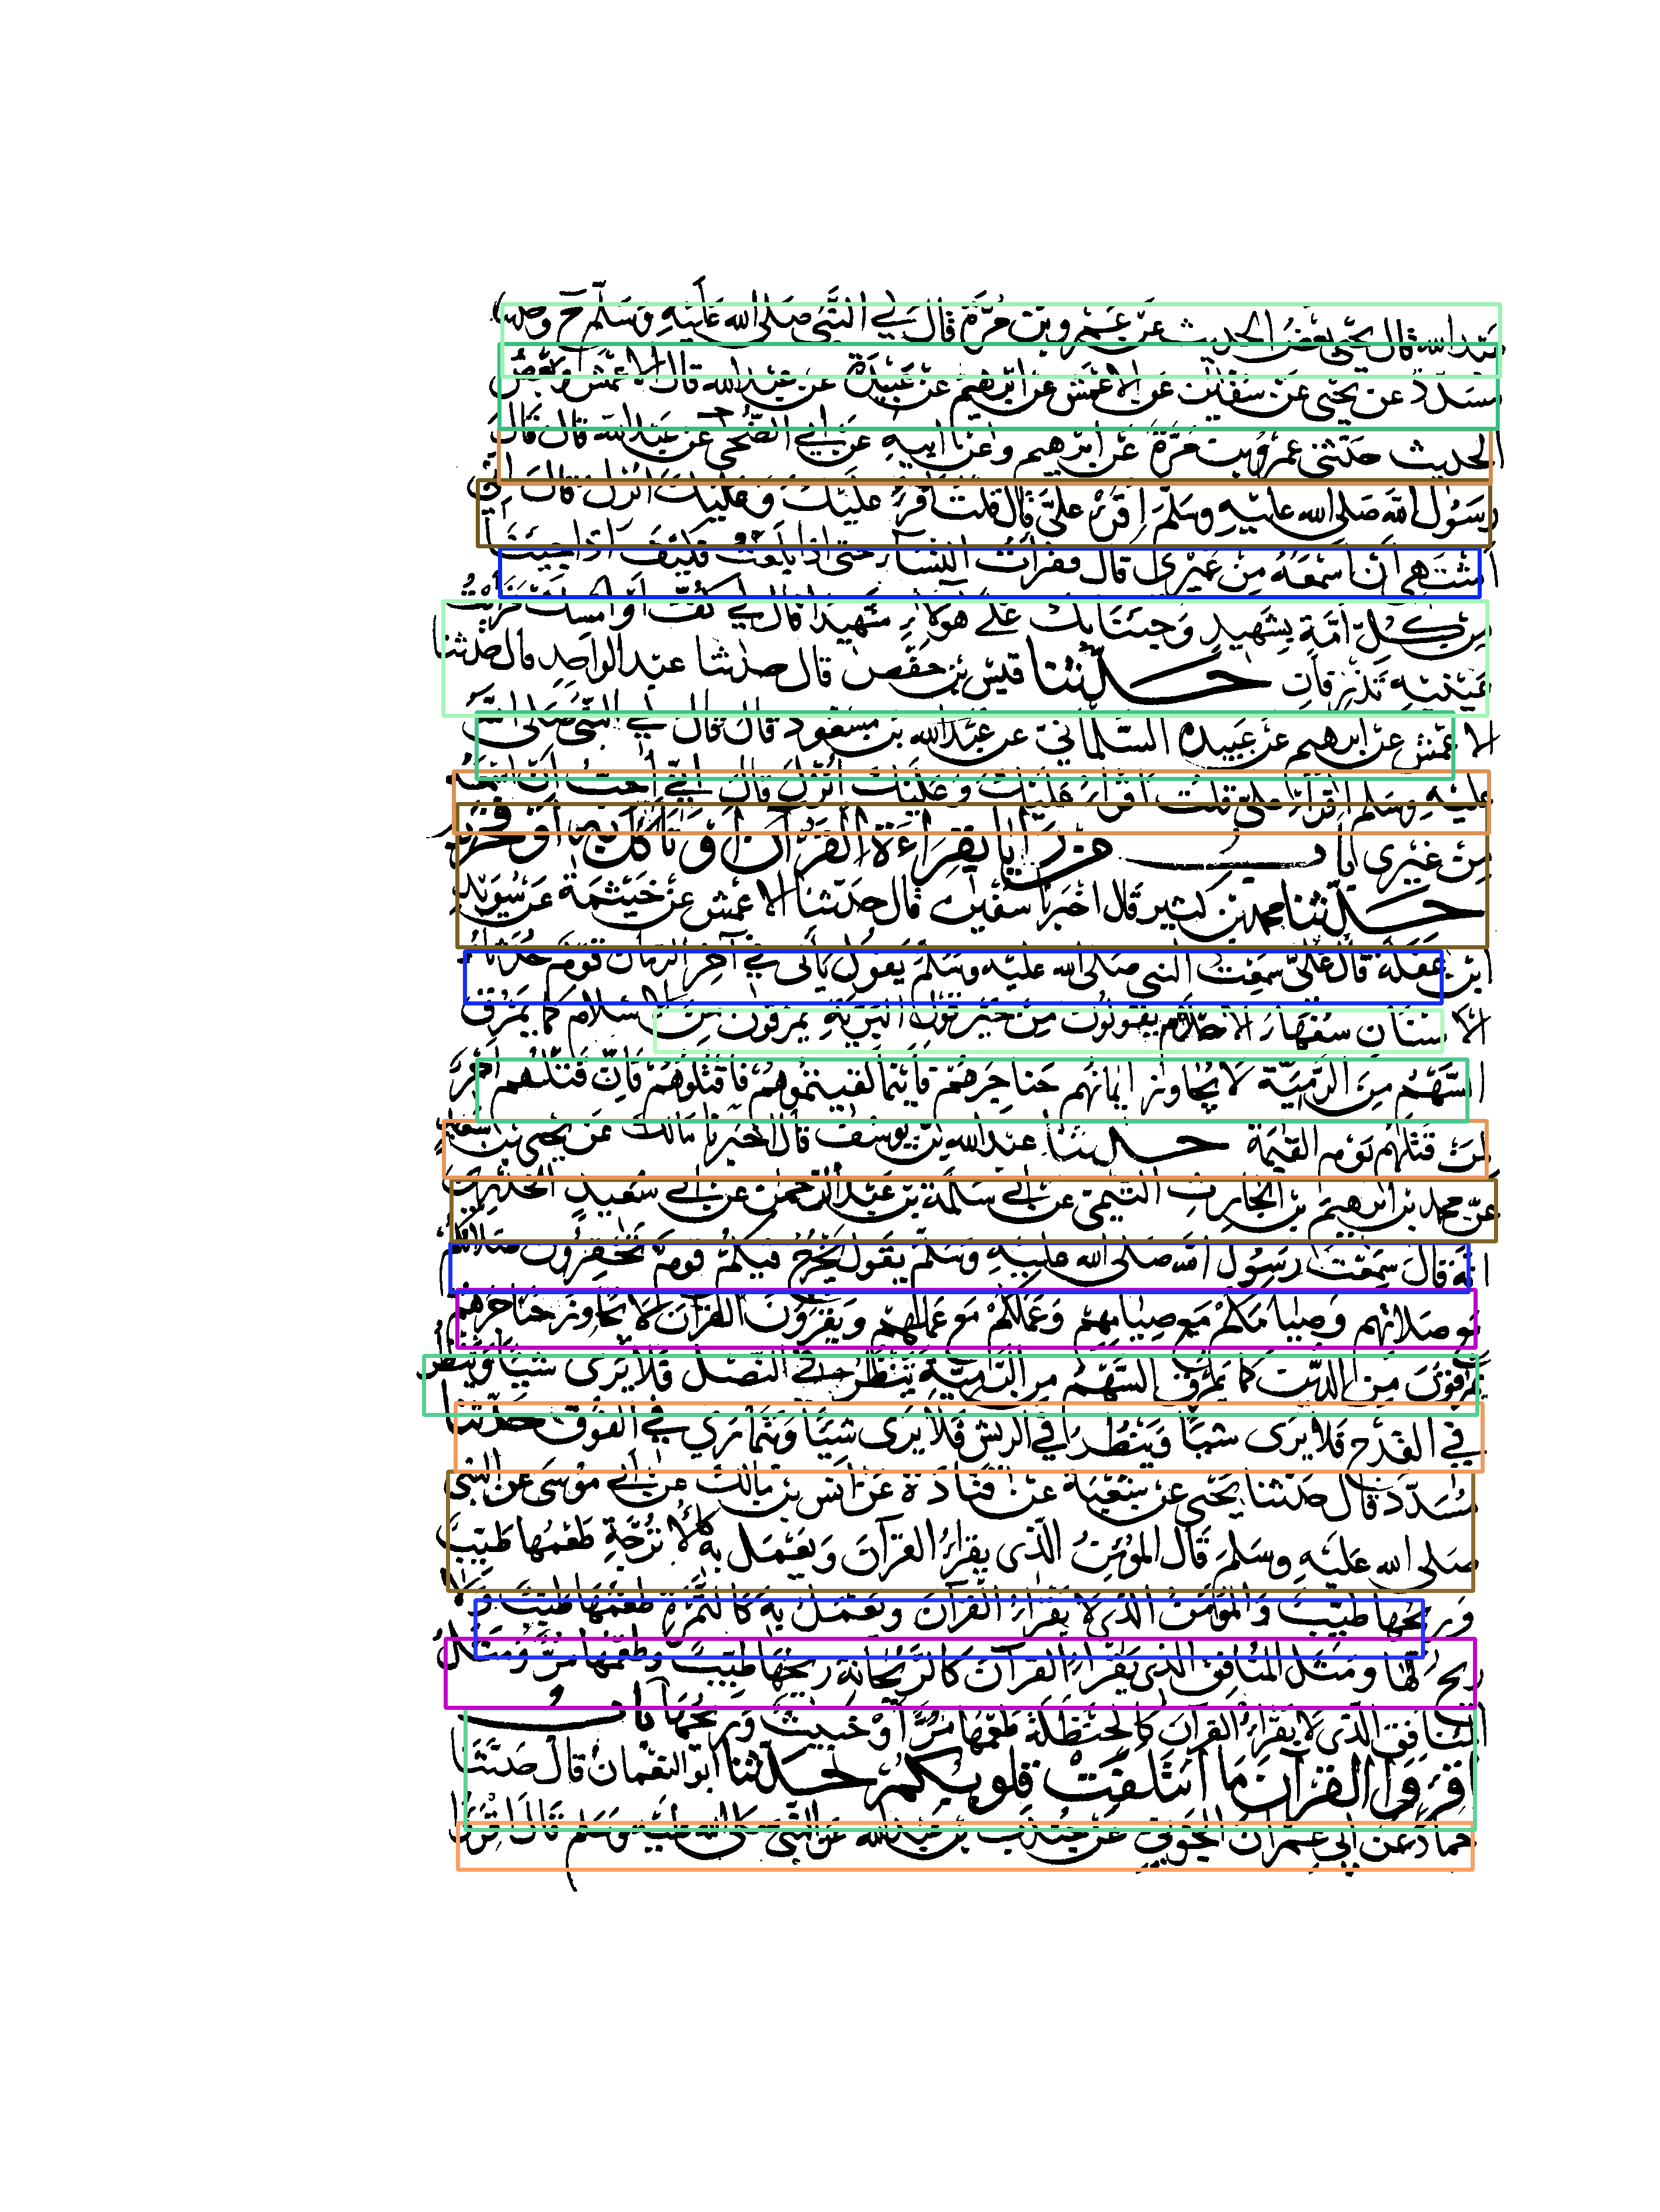 عبد الله قال يحيى بعض الحديث عن عمرو بن مرة قال لي النبي صلى الله عليه وسلم ح وحدثنا
مسدد عن يحيى عن سفين عن الاعمش عن ابرهيم عن عبيدة عن عبد الله قال الاعمش وبعض
الحديث حدثني عمرو بن مرة عن ابرهيم وعن ابيه عن ابي الضحى عن عبد الله قال قال
رسول الله صلى الله عليه وسلم اقرأ علي قال قلت اقرأ عليك وعليك انزل قال اني
اشتهي ان اسمعه من غيري قال فقرأت النساء حتى اذا بلغت فكيف اذا جئنا
من كل امة بشهيد وجئنا بك على هؤلاء شهيدا قال لي كف او امسك فرأيت
عينيه تذرفان حدثنا قيس بن حفص قال حدثنا عبد الواحد قال حدثنا
الاعمش عن ابرهيم عن عبيدة السلماني عن عبد الله بن مسعود قال قال لي النبي صلى الله
عليه وسلم اقرأ علي قلت اقرأ عليك وعليك انزل قال اني احب ان اسمعه
من غيري باب من رايا بقراءة القرآن او تأكل به او فخر به
حدثنا محمد بن كثير قال اخبرنا سفين قال حدثنا الاعمش عن خيثمة عن سويد
ابن غفلة قال علي سمعت النبي صلى الله عليه وسلم يقول يأتي في آخر الزمان قوم حدثاء
الاسنان سفهاء الاحلام يقولون من خير قول البرية يمرقون من الاسلام كما يمرق
السهم من الرمية لا يجاوز ايمانهم حناجرهم فأينما لقيتموهم فاقتلوهم فان قتلهم اجر
لمن قتلهم يوم القيمة حدثنا عبد الله بن يوسف قال اخبرنا مالك عن يحيى بن سعيد
عن محمد بن ابرهيم بن الحارث التيمي عن ابي سلمة بن عبد الرحمن عن ابي سعيد الخدري
انه قال سمعت رسول الله صلى الله عليه وسلم يقول يخرج فيكم قوم تحقرون صلاتكم
مع صلاتهم وصيامكم مع صيامهم وعملكم مع عملهم ويقرؤن القرآن لا يجاوز حناجرهم
يمرقون من الدين كما يمرق السهم من الرمية ينظر في النصل فلا يرى شيئا وينظر
في القدح فلا يرى شيئا وينظر في الريش فلا يرى شيئا ويتمارى في الفوق حدثنا
مسدد قال حدثنا يحيى عن شعبة عن قتادة عن انس بن مالك عن ابي موسى عن النبي
صلى الله عليه وسلم قال المؤمن الذي يقرأ القرآن ويعمل به كالاترجة طعمها طيب
وريحها طيب والمؤمن الذي لا يقرأ القرآن ويعمل به كالتمرة طعمها طيب ولا
ريح لها ومثل المنافق الذي يقرأ القرآن كالريحانة ريحها طيب وطعمها مر ومثل
المنافق الذي لا يقرأ القرآن كالحنظلة طعمها مر او خبيث وريحها باب
اقرؤا القرآن ما ائتلفت قلوبكم حدثنا ابو النعمان قال حدثنا
حماد عن ابي عمران الجوني عن جندب بن عبد الله عن النبي صلى الله عليه وسلم قال اقرؤا